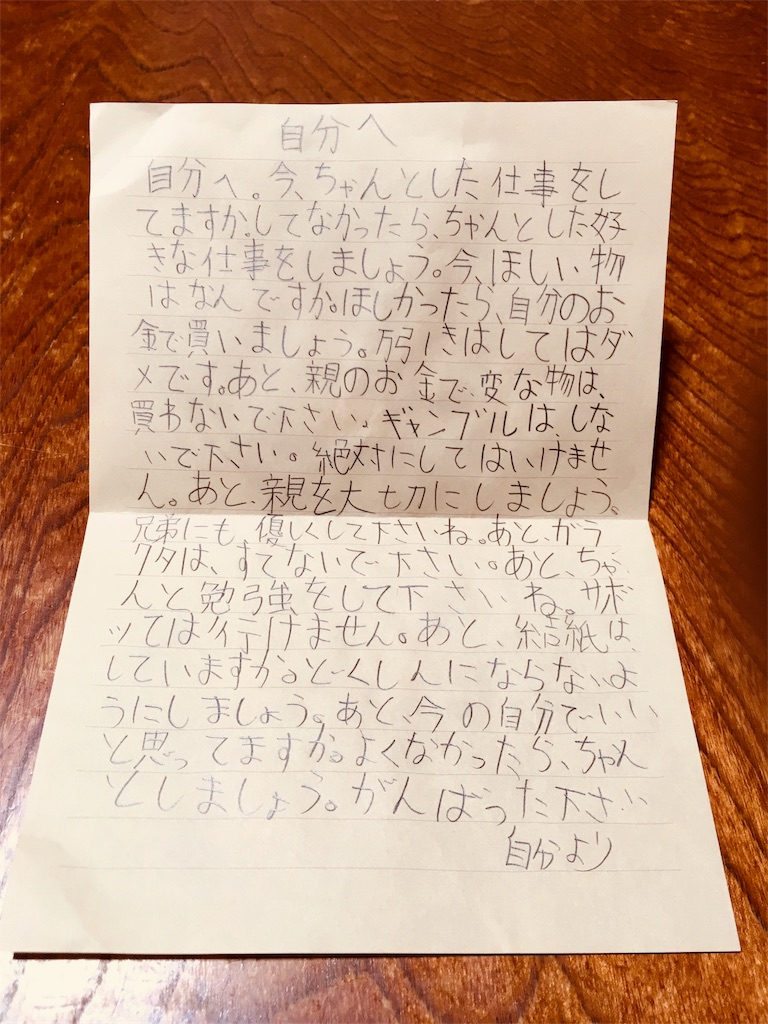 自分へ
自分へ。今、ちゃんとした仕事をし
てますか。してなかったら、ちゃんとした好
きな仕事をしましょう。今、ほしい物
はなんですか。ほしかったら、自分のお
金で買いましょう。引きはしてはダ
メです。あと、親のお金で、変な物は、
買わないで下さい。ギャンブルは、しな
いで下さい。絶対にしてはいけませ
ん。あと、親を大切にしましょう。
兄弟にも、優しくして下さいね。あと、ガラ
クタは、すてないで下さい。あと、ちゃ
んと勉強をして下さいね。サボ
ッては行けません。あと、結紙は、
していますか。どくしんにならないよ
うにしましょう。あと、今の自分でいい
と思ってますか。よくなかったら、ちゃん
としましょう。がんばった下さい
自分より